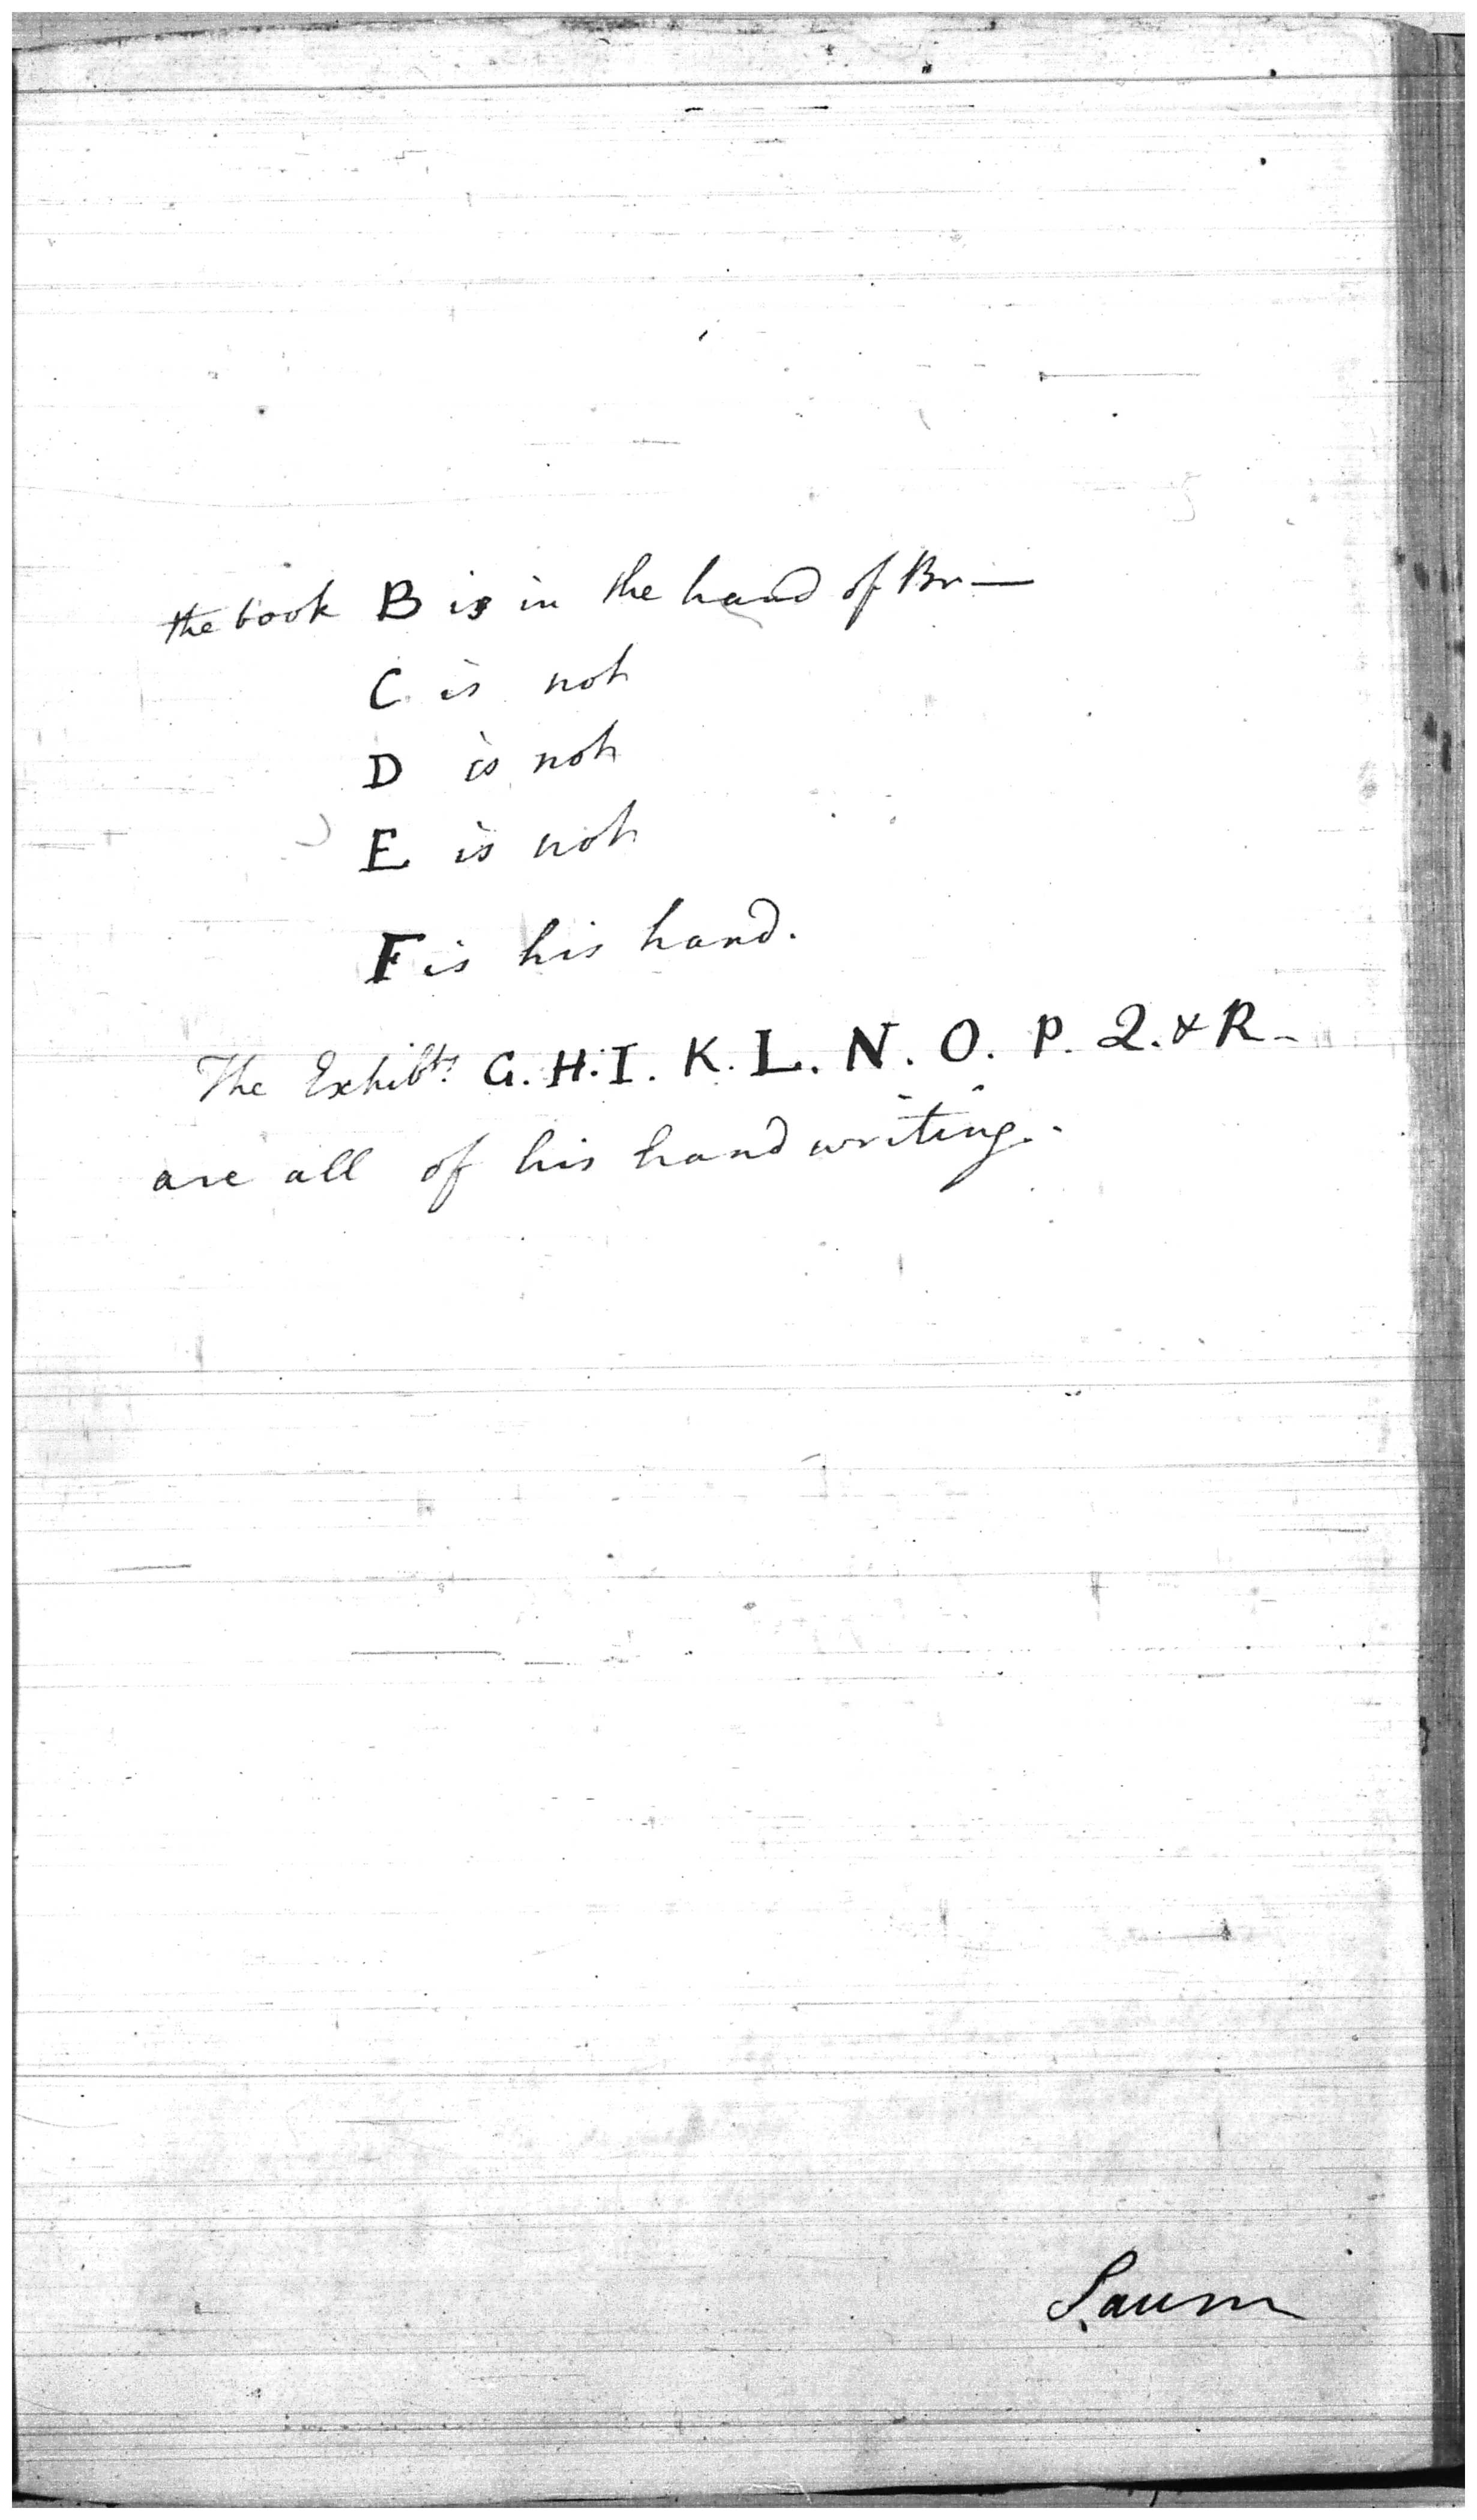 the book B is in the hand of Br—
C is not
D is not
E is not
F is his hand.
The Exhibts. G. H. I. K. L. N. O. P. Q. & R-
are all of his hand writing.-